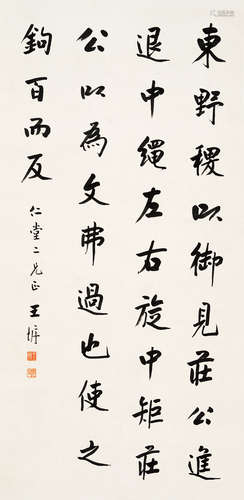 東野稷以御見莊公進
退中繩左右旋中矩莊
公以為文弗過也使之
鉤百而反
仁堂二兄正 王垿